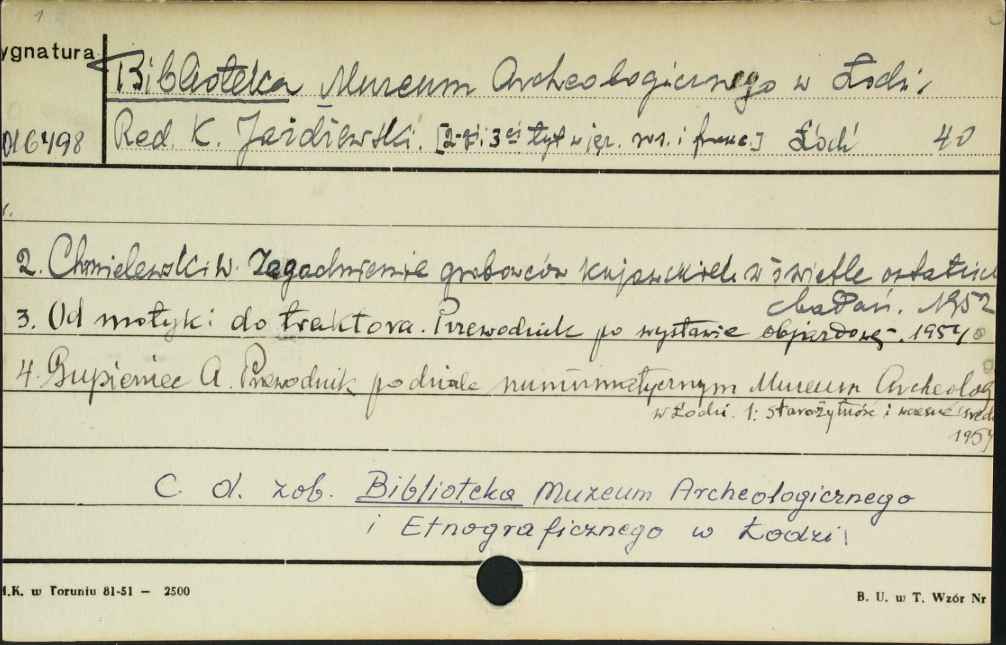 1
ygnatura
Biblioteka Muzeum Archeologicznego w Łodzi
016498 Red. K. Jażdżewski. [2-gi i 3ci tyt. w jęz. ros. i franc.] Łódź 40
r.
2. Chmielewski W. Zagadnienie grobowców kujawskich w świetle ostatnich
badań. 1952
3. Od motyki do traktora. Przewodnik po wystawie objazdowej. 1954
4. Gupieniec A. Przewodnik po dziale numizmatycznym Muzeum Archeolog
w Łodzi. 1: Starożytność i wczesne śred
1954
C. d. zob. Biblioteka Muzeum Archeologicznego
i Etnograficznego w Łodzi
.K. w Toruniu 81-51 — 2500
B. U. w T. Wzór Nr